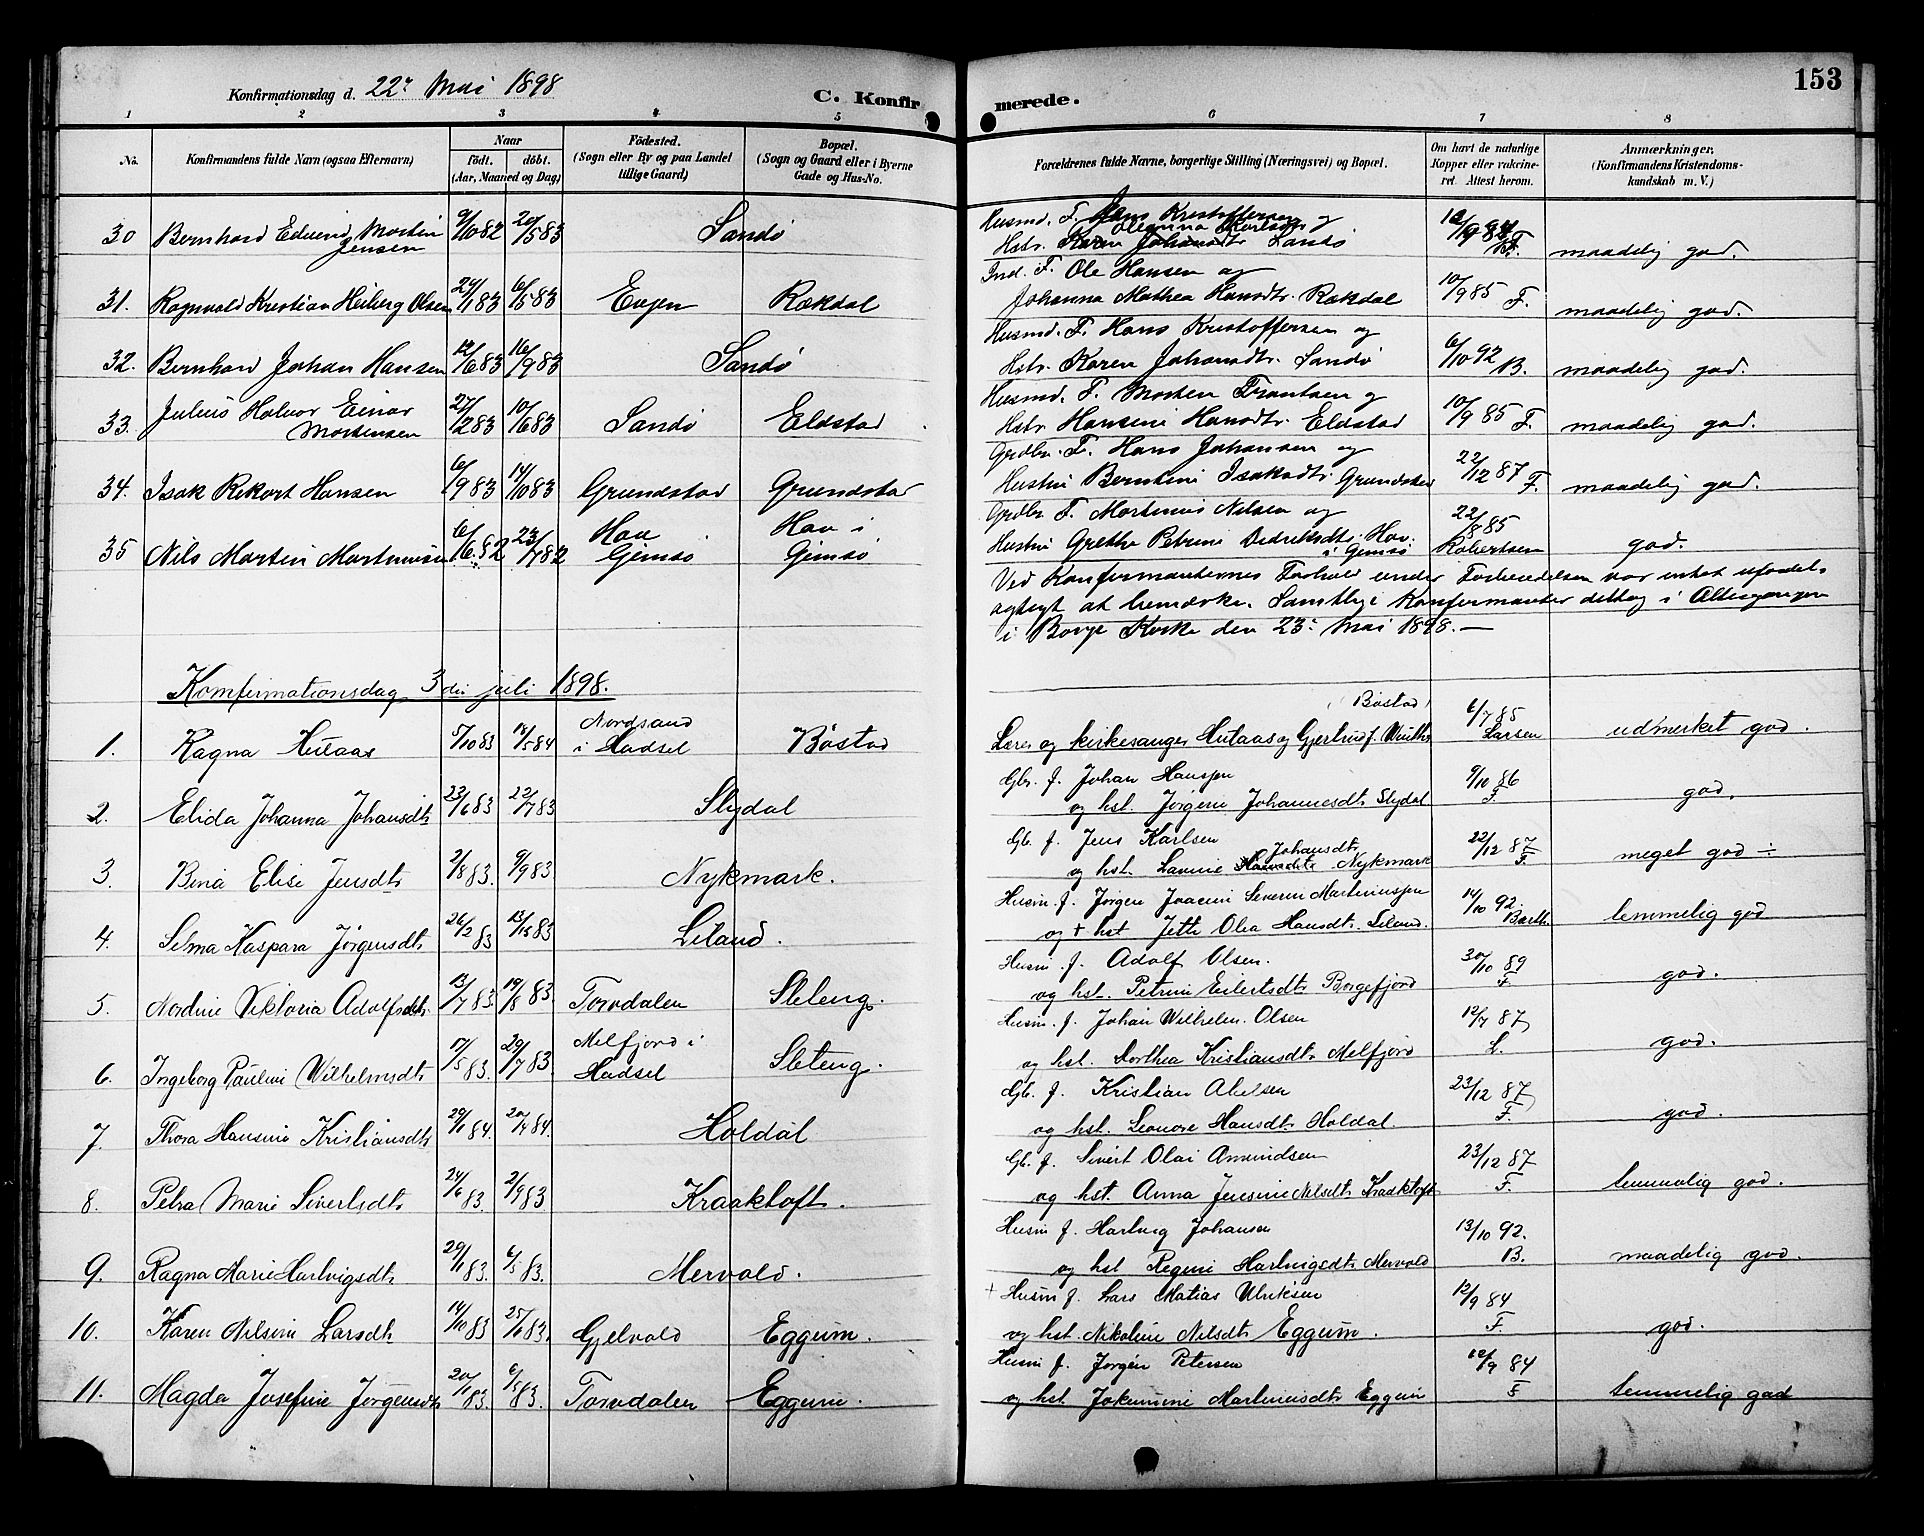 153
Konfirmationsdag d. 22. Mai 1898
C. Konfirmerede.
1 2 3 4 5 6 7 8
No.
Konfirmandens fulde Navn (ogsaa Efternavn)
Naar
født. døbt.
(Aar, Maaned og Dag)
Födested.
(Sogn eller By og paa Landet
tillige Gaard)
Bopæl.
(Sogn og Gaard eller i Byerne
Gade og Hus-No.
Forældrenes fulde Navne, borgerlige Stilling (Næringsvei) og Bopæl.
Om havt de naturlige
Kopper eller vakcine-
ret. Attest herom.
Anmærkninger.
(Konfirmandens Kristendoms-
kundskab m. V.)
30 Bernhard Edvind Martin Jensen 9/10 82 20/5 83 Sandö
Husmd. F. Jens Kristoffersen og
Hstr. Olegrina Karlsdtr Sandö maadelig god.
31. Ragnvald Kristian Heiberg Olsen 29/1 83 6/5 83 Evjen Rækdal
Ind. F. Ole Hansen og
Johanna Mathea Hansdtr. Rækdal 10/9 85 F. maadelig god.
32. Bernhard Johan Hansen 12/6 83 16/9 83 Sandö
Husmd. F. Hans Kristoffersen og
Hstr. Karen Johansdtr. Sandö 6/10 92 B. maadelig god.
33. Julius Halvor Einar Mortensen 27/2 83 10/6 83 Sandö Eldstad
Husmd. F. Morten Frantsen og
Hstr. Hansine Hansdtr. Eldstad 10/9 85 F. maadelig god.
34. Isak Rikart Hansen 6/9 83 14/10 83 Grundstad Grundstad
Grdbr. F. Hans Johansen og
Hustru Berntine Isaksdtr. Grundstad 22/12 87 F. maadelig god.
35 Nils Martin Martinusen 6/6 82 23/7 82 Hav Gimsö Hav i Gimsö
Grdbr. F. Martinus Nilsen og
Hustru Grethe Petrine Dedriksdtr. Hav i Gimsö 22/8 85 Robertsen god.
Ved Konfirmanternes Forhold under Forberedelsen var intet ufordel-
agtigt at bemærke. Samtlige Konfirmanter deltog i Altergangen
i Borge Kirke den 23. Mai 1898. —
Konfirmationsdag 3die juli 1898.
1. Ragna Hutaas 5/10 83 14/5 84 Nordsand i Hadsel Böstad
(Böstad)
Lærer og kirkesanger Hutaas og Gjertrud f. Winther 6/7 85 Larsen udmerket god.
2. Elida Johanna Johansdtr 23/6 83 22/7 83 Slydal
Gbr. f. Johan Hanssen
og hst. Jørgine Johannesdtr Slydal 9/10 86 F. god.
3. Bina Elise Jensdtr 2/8 83. 9/9 83 Nykmark.
Gb. f. Jens Karlsen
og hst. Lavine Johansdtr Nykmark 22/12 87 F. meget god ÷
4. Selma Kaspara Jørgensdtr 26/2 83 13/5 83 Leland.
Husm. f. Jørgen Joacim Severin Martinussen
og + hst Jette Olea Hansdtr. Leland. 14/10 92. Barth. temmelig god
5. Nordine Viktoria Adolfsdtr. 13/7 83. 19/8 83. Torvdalen Sleteng.
Husm. f. Adolf Olsen.
og hst. Petrine Eilertsdtr Borgefjord 30/10 89 F. god.
6. Ingeborg Pauline Wilhelmsdtr 17/5 83. 29/7 83 Melfjord i Hadsel Sleteng.
Husm. f. Johan Wilhelm Olsen
og hst. Dorthea Kristiansdtr Melfjord 12/7 87 L. god.
7. Thora Hansine Kristiansdtr 29/1 84. 20/4 84. Holdal
Gb. f. Kristian Abelsen
og hst. Leonore Hansdtr Holdal. 23/12 87 F. god.
8. Petra Marie Sivertsdtr 24/6 83. 2/9 83 Kraaktoft.
Gb. f. Sivert Olai Amundsen
og hst. Anna Jensine Nilsdtr Kraaktoft 23/12 87 F. temmelig god.
9. Ragna Marie Hartvigsdtr 29/1 83. 6/5 83. Mervold.
Husm f. Hartvig Johansen
og hst Regine Hartvigsdtr Mervold 13/10 92. B. maadelig god.
10. Karen Nilsine Larsdtr 14/10 83 25/11 83. Gjelvold Eggum.
+ Husm f. Lars Matias Ulriksen
og hst. Nikoline Nilsdtr Eggum. 12/9 84 F. god.
11. Magda Josefine Jørgensdtr 20/1 83. 6/5 83. Torvdalen Eggum.
Husm f. Jørgen Petersen
og hst. Jakumine Martinusdtr Eggum 12/9 84 F temmelig god